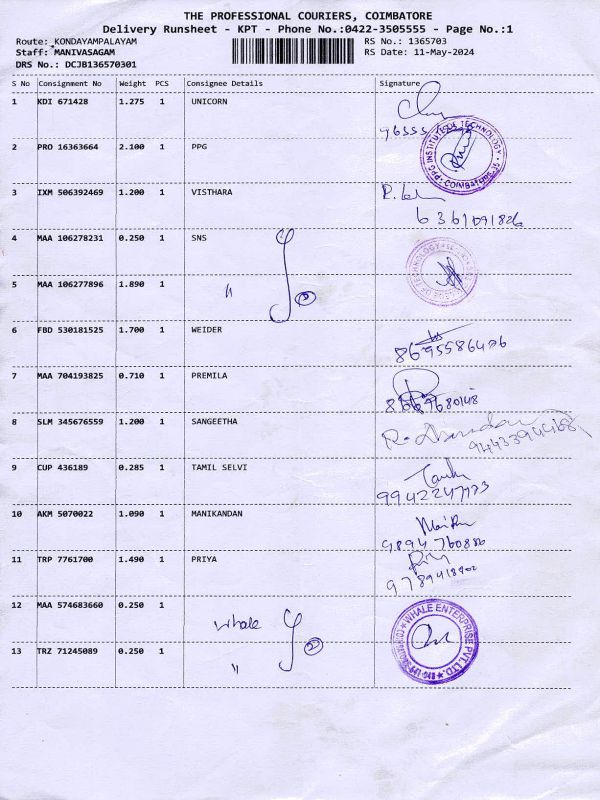 THE PROFESSIONAL COURIERS, COIMBATORE
Delivery Runsheet - KPT - Phone No.:0422-3505555 - Page No.:1
Route: KONDAYAMPALAYAM
Staff: MANIVASAGAM
DRS No.: DCJB136570301
RS No.: 1365703
RS Date: 11-May-2024
S No Consignment No Weight PCS Consignee Details Signature
1 KDI 671428 1.275 1 UNICORN
2 PRO 16363664 2.100 1 PPG
PPG INSTITUTE OF TECHNOLOGY
COIMBATORE
3 IXM 506392469 1.200 1 VISTHARA
6361091826
4 MAA 106278231 0.250 1 SNS
5 MAA 106277896 1.890 1 "
2
OF TECHNOLOGY
6 FBD 530181525 1.700 1 WEIDER
8695586476
7 MAA 704193825 0.710 1 PREMILA
8 SLM 345676559 1.200 1 SANGEETHA
9443394468
9 CUP 436189 0.285 1 TAMIL SELVI
9942247173
10 AKM 5070022 1.090 1 MANIKANDAN
9894760886
11 TRP 7761700 1.490 1 PRIYA
9789418902
12 MAA 574683660 0.250 1 whale
13 TRZ 71245089 0.250 1 "
2
WHALE ENTERPRISE PVT. LTD.